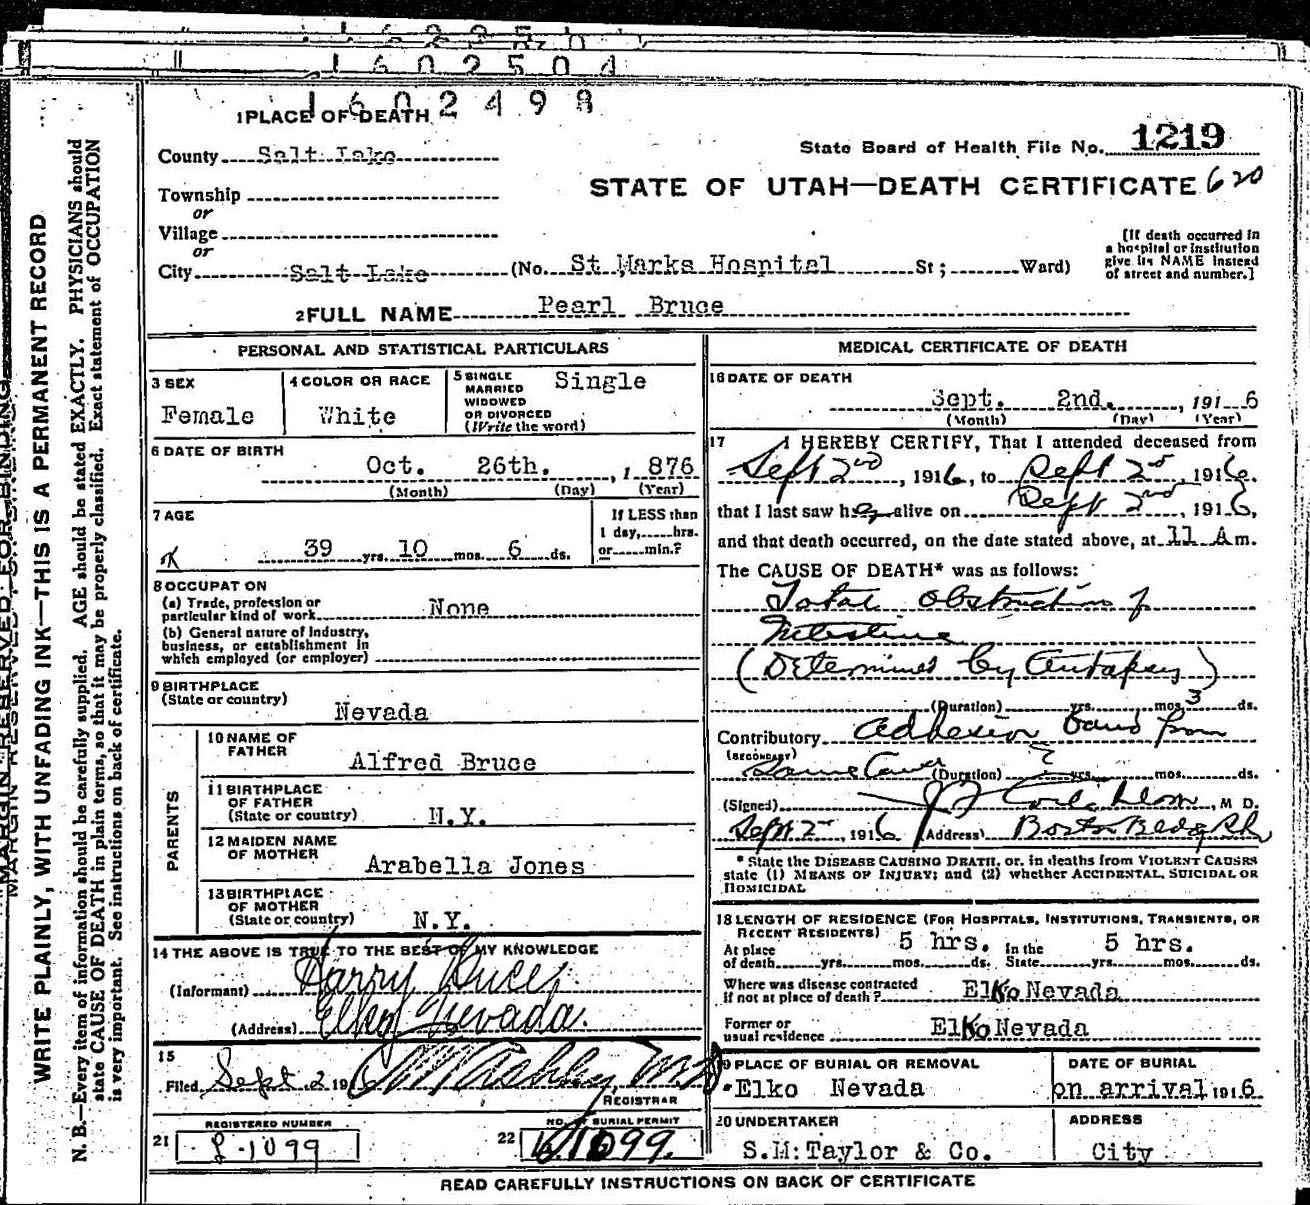 1602504
1602498
1 PLACE OF DEATH
County Salt Lake
State Board of Health File No. 1219
STATE OF UTAH—DEATH CERTIFICATE 620
Township
or
Village
or
City Salt Lake (No. St Marks Hospital St; Ward)
[If death occurred in
a hospital or institution
give its NAME instead
of street and number.]
2 FULL NAME Pearl Bruce
PERSONAL AND STATISTICAL PARTICULARS
3 SEX
Female
4 COLOR OR RACE
White
5 SINGLE
MARRIED
WIDOWED
OR DIVORCED
(Write the word)
Single
6 DATE OF BIRTH
Oct. 26th. , 1876
(Month) (Day) (Year)
7 AGE
39 yrs. 10 mos. 6 ds.
If LESS than
1 day, hrs.
or min.?
8 OCCUPATON
(a) Trade, profession or
particular kind of work None
(b) General nature of Industry,
business, or establishment in
which employed (or employer)
9 BIRTHPLACE
(State or country)
Nevada
PARENTS
10 NAME OF
FATHER
Alfred Bruce
11 BIRTHPLACE
OF FATHER
(State or country)
N.Y.
12 MAIDEN NAME
OF MOTHER
Arabella Jones
13 BIRTHPLACE
OF MOTHER
(State or country)
N.Y.
14 THE ABOVE IS TRUE TO THE BEST OF MY KNOWLEDGE
(Informant) Harry Bruce,
(Address) Elko Nevada.
15
Filed Sept. 2 1916 M.D.
REGISTRAR
REGISTERED NUMBER
21 1099
NO. OF BURIAL PERMIT
22 1099.
MEDICAL CERTIFICATE OF DEATH
16 DATE OF DEATH
Sept. 2nd. , 1916
(Month) (Day) (Year)
17 I HEREBY CERTIFY, That I attended deceased from
Sept 2nd, 1916, to Sept 2nd, 1916.
that I last saw her alive on Sept 2nd, 1916,
and that death occurred, on the date stated above, at 11 A m.
The CAUSE OF DEATH* was as follows:
Total obstruction of
Intestine
(Determined by Autopsy)
(Duration) yrs. mos. 3 ds.
Contributory adhesion band from
(SECONDARY)
some cause (Duration) ? yrs. mos. ds.
(Signed) , M D.
Sept 2nd, 1916 (Address) Boston Bldg
* State the DISEASE CAUSING DEATH, or, in deaths from VIOLENT CAUSES
state (1) MEANS OF INJURY; and (2) whether ACCIDENTAL, SUICIDAL OR
HOMICIDAL
18 LENGTH OF RESIDENCE (FOR HOSPITALS, INSTITUTIONS, TRANSIENTS, OR
RECENT RESIDENTS)
At place
of death yrs. mos. ds. 5 hrs. In the
State yrs. mos. ds. 5 hrs.
Where was disease contracted
if not at place of death? Elko Nevada
Former or
usual residence Elko Nevada
19 PLACE OF BURIAL OR REMOVAL
Elko Nevada
DATE OF BURIAL
on arrival 1916.
20 UNDERTAKER
S.M. Taylor & Co.
ADDRESS
City
READ CAREFULLY INSTRUCTIONS ON BACK OF CERTIFICATE
MARGIN RESERVED FOR BINDING
WRITE PLAINLY, WITH UNFADING INK—THIS IS A PERMANENT RECORD
N. B.—Every item of information should be carefully supplied. AGE should be stated EXACTLY. PHYSICIANS should
state CAUSE OF DEATH in plain terms, so that it may be properly classified. Exact statement of OCCUPATION
is very important. See instructions on back of certificate.